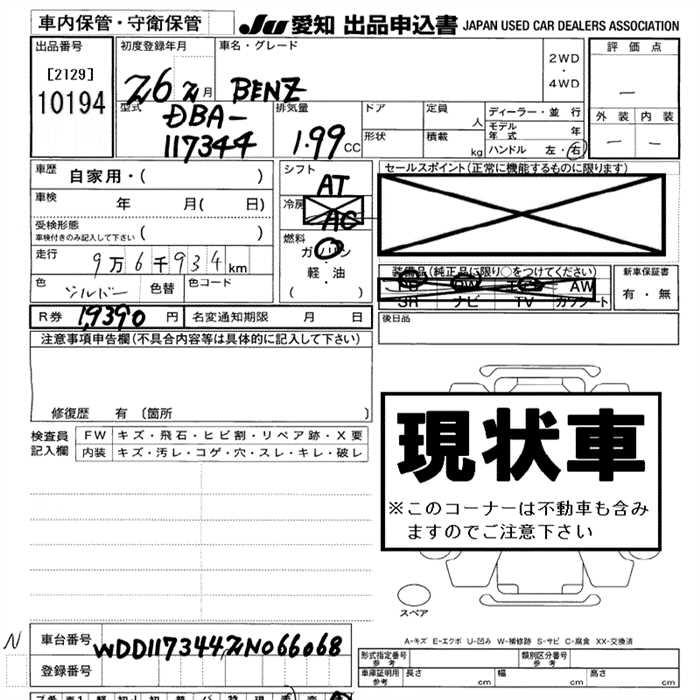 車内保管・守衛保管 JU 愛知 出品申込書 JAPAN USED CAR DEALERS ASSOCIATION
出品番号 初度登録年月 車名・グレード 2WD・4WD 評価点
[2129] 26 2月 BENZ ー
10194 型式 排気量 ドア 定員 人 ディーラー・並行 外装 内装
DBA- モデル年式 年 ー ー
117344 1.99 CC 形状 積載 kg ハンドル 左・右
車歴 自家用・( ) シフト AT セールスポイント(正常に機能するものに限ります)
車検 年 月( 日) 冷房 AC
受検形態 ( )
車検付きのみ記入して下さい
燃料 ガソリン・軽油
( )
走行 9万6千934km
装備品(純正品に限り○をつけてください) 新車保証書
色 シルバー 色替 色コード
SR ナビ TV カワシート AW 有・無
R券 19390円 名変通知期限 月 日 後日品
注意事項申告欄(不具合内容等は具体的に記入して下さい)
修復歴 有 〔箇所 〕
現状車
※このコーナーは不動車も含み
ますのでご注意下さい
検査員記入欄 FW キズ・飛石・ヒビ割・リペア跡・X要
内装 キズ・汚レ・コゲ・穴・スレ・キレ・破レ
スペア
A-キズ E-エクボ U-凹み W-補修跡 S-サビ C-腐食 XX-交換済
N 車台番号 WDD1173442N066068
登録番号
形式指定番号 参考 類別区分番号 参考
車庫証明用 参考 長さ cm 幅 cm 高さ cm